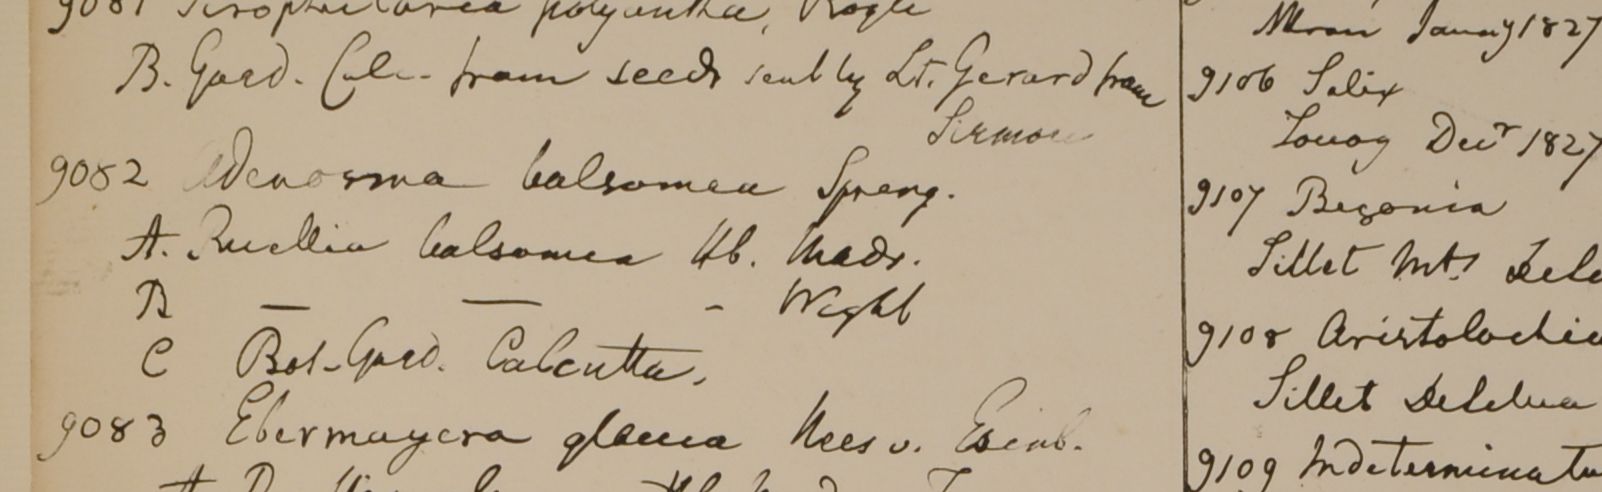 9081 Scrophularia polyantha, Royle
B. Gard. Calc. from seeds sent by Lt. Gerard from
Sirmore
9082 Adenosma balsamea Spreng.
A. Ruellia balsamea Hb. Madr.
B — — - Wight
C Bot. Gard. Calcutta.
9083 Ebermayera glauca Nees v. Esenb.
1827
9106 Salix
Tavoy Decr 1827
9107 Begonia
Sillet Mts
9108 Aristolochia
Sillet
9109 Indeterminata